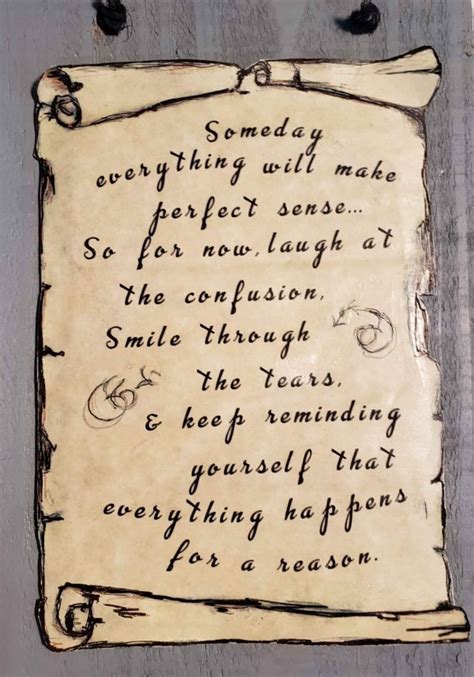 Someday
everything will make
perfect sense...
So for now, laugh at
the confusion,
Smile through
the tears,
& keep reminding
yourself that
everything happens
for a reason.